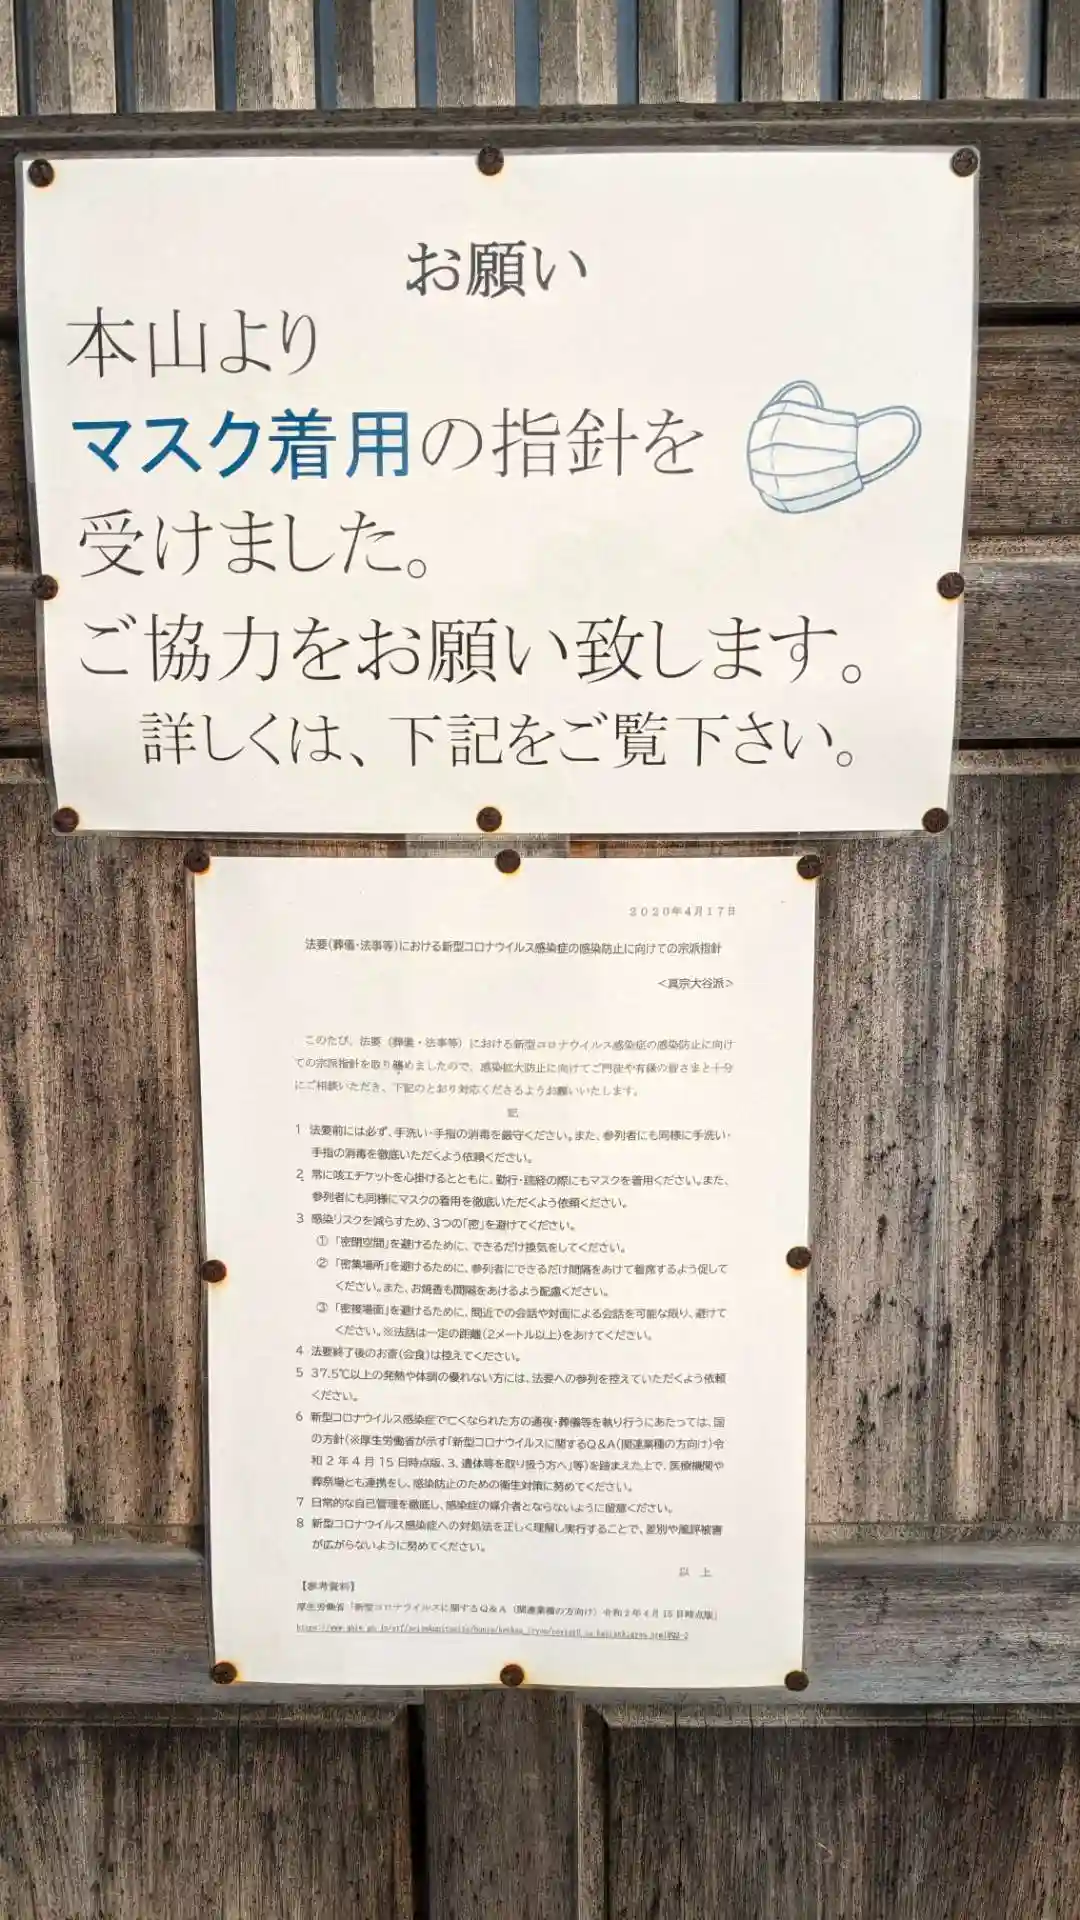 お願い
本山より
マスク着用の指針を
受けました。
ご協力をお願い致します。
詳しくは、下記をご覧下さい。
2020年4月17日
法要(葬儀・法事等)における新型コロナウイルス感染症の感染防止に向けての宗派指針
<真宗大谷派>
このたび、法要(葬儀・法事等)における新型コロナウイルス感染症の感染防止に向け
ての宗派指針を取り纏めましたので、感染拡大防止に向けてご門徒や有縁の皆さまと十分
にご相談いただき、下記のとおり対応くださるようお願いいたします。
記
1 法要前には必ず、手洗い・手指の消毒を厳守ください。また、参列者にも同様に手洗い・
手指の消毒を徹底いただくよう依頼ください。
2 常に咳エチケットを心掛けるとともに、勤行・読経の際にもマスクを着用ください。また、
参列者にも同様にマスクの着用を徹底いただくよう依頼ください。
3 感染リスクを減らすため、3つの「密」を避けてください。
① 「密閉空間」を避けるために、できるだけ換気をしてください。
② 「密集場所」を避けるために、参列者にできるだけ間隔をあけて着席するよう促して
ください。また、お焼香も間隔をあけるよう配慮ください。
③ 「密接場面」を避けるために、間近での会話や対面による会話を可能な限り、避けて
ください。※法話は一定の距離(2メートル以上)をあけてください。
4 法要終了後のお斎(会食)は控えてください。
5 37.5℃以上の発熱や体調の優れない方には、法要への参列を控えていただくよう依頼
ください。
6 新型コロナウイルス感染症で亡くなられた方の通夜・葬儀等を執り行うにあたっては、国
の方針(※厚生労働省が示す「新型コロナウイルスに関するQ&A(関連業種の方向け)令
和2年4月15日時点版、3.遺体等を取り扱う方へ」等)を踏まえた上で、医療機関や
葬祭場とも連携をし、感染防止のための衛生対策に努めてください。
7 日常的な自己管理を徹底し、感染症の媒介者とならないように留意ください。
8 新型コロナウイルス感染症への対処法を正しく理解し実行することで、差別や風評被害
が広がらないように努めてください。
以 上
【参考資料】
厚生労働省「新型コロナウイルスに関するQ&A(関連業種の方向け)令和2年4月15日時点版」